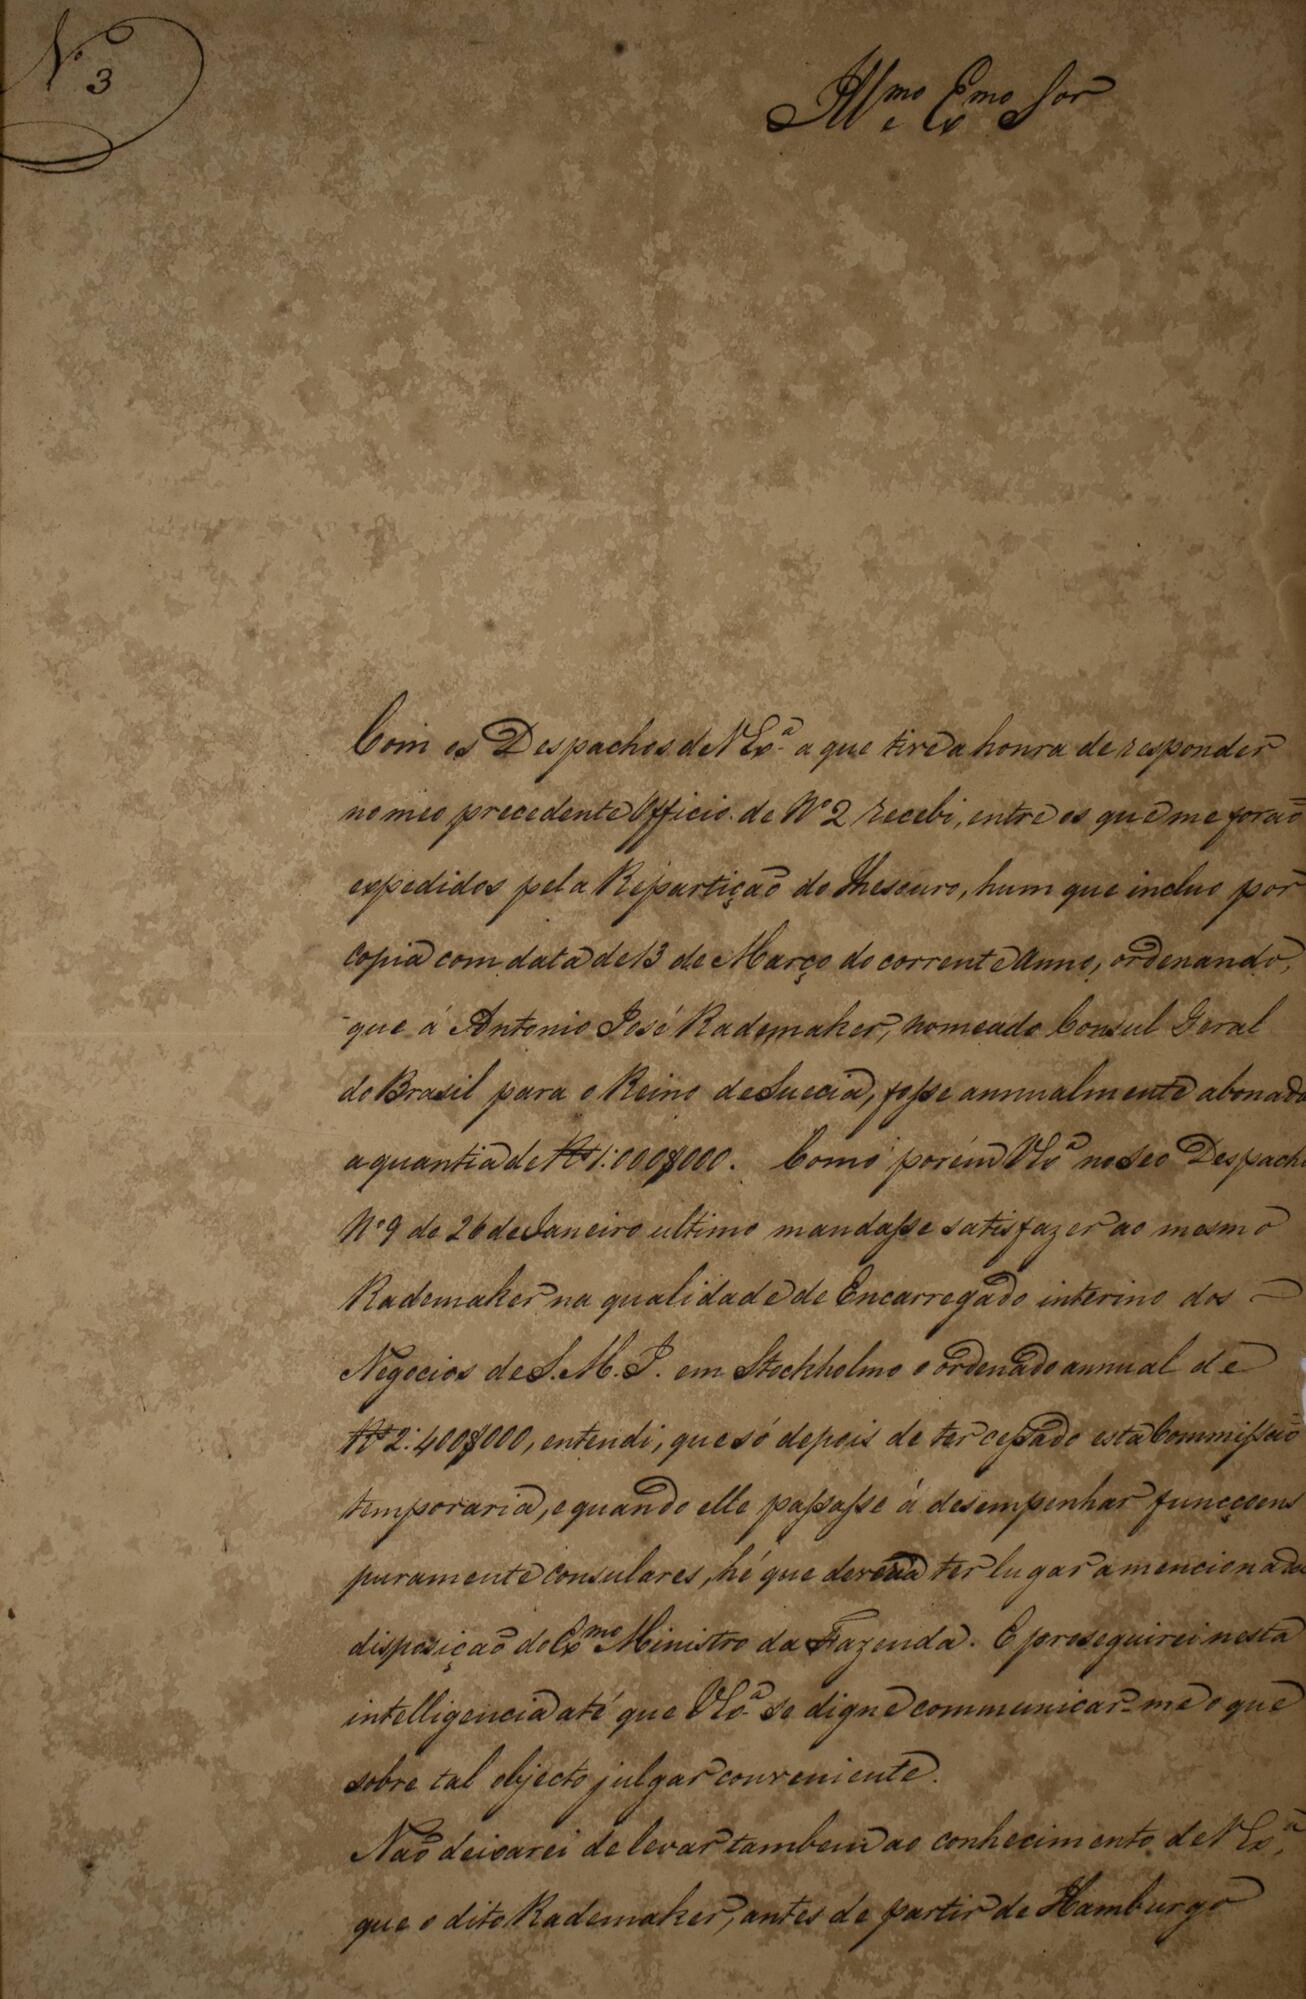 Nº 3
Illmo e Exmo Sor
Com os Despachos de V Exª a que tive a honra de responder
no meo precedente Officio de Nº 2 recebi, entre os que me forão
expedidos pela Repartição do Thesouro, hum que incluo por
copia com data de 13 de Março do corrente anno, ordenando,
que á Antonio José Rademaker, nomeado Consul Geral
do Brasil para o Reino de Suecia, fosse annualmente abonada
a quantia de Rs 1:000$000. Como porém VExª no seo Despacho
Nº 9 de 26 de Janeiro ultimo mandasse satisfazer ao mesmo
Rademaker na qualidade de Encarregado interino dos
Negocios de S. M. I. em Stockholmo o ordenado annual de
Rs 2:400$000, entendi, que só depois de ter cessado esta Commissão
temporaria, e quando elle passasse á desempenhar funcçoens
puramente consulares, hé que deverá ter lugar a mencionada
disposição do Exmo Ministro da Fazenda. E proseguirei nesta
intelligencia até que VExª se digne communicar-me o que
sobre tal objecto julgar conveniente.
Não deixarei de levar tambem ao conhecimento de V Exª,
que o dito Rademaker, antes de partir de Hamburgo